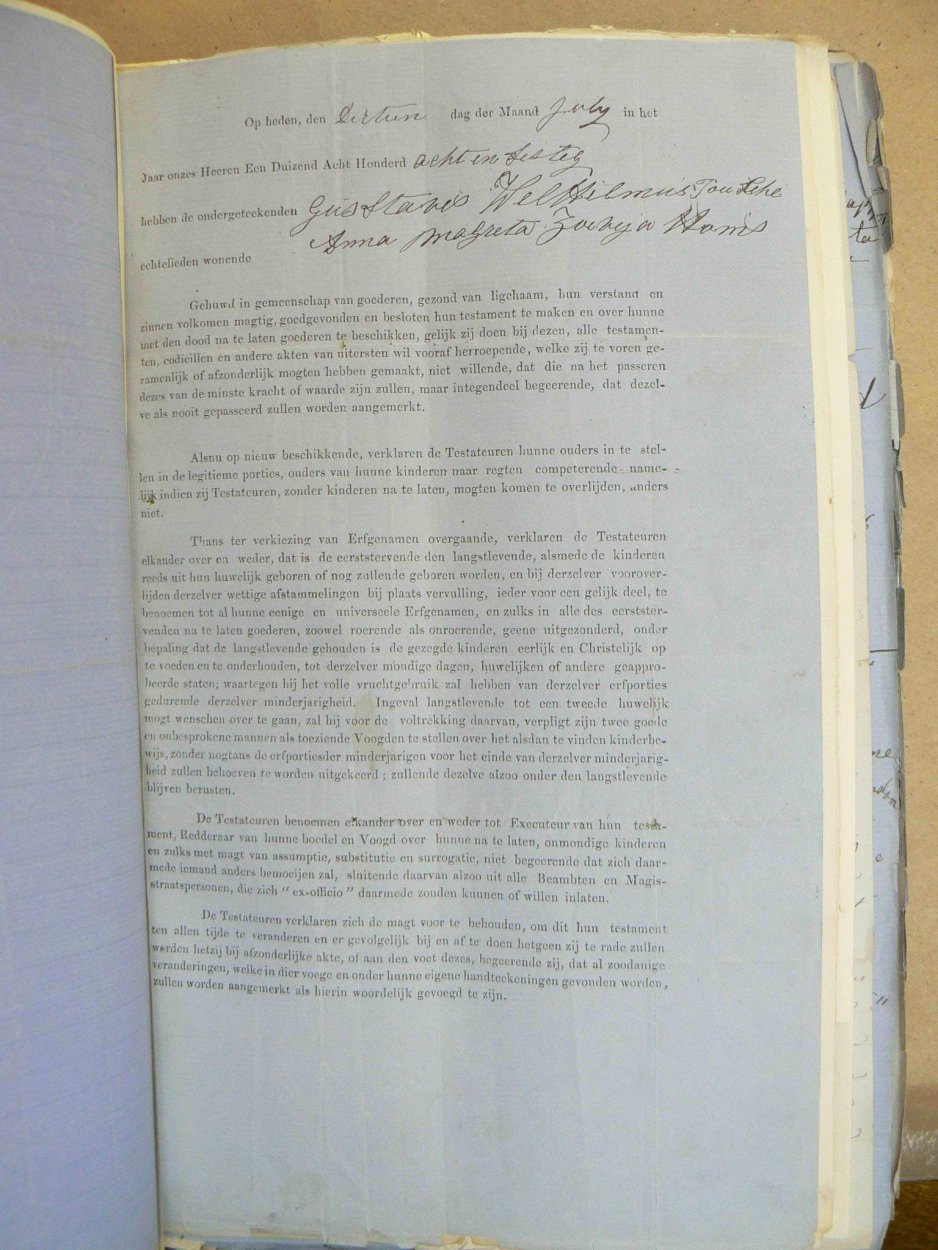 Op heden, den Dertien dag der Maand July in het
Jaar onzes Heeren Een Duizend Acht Honderd acht en sesteg
hebben de ondergeteekenden Gusstavis Welhilmus
Anna Magreta Hams
echtelieden wonende
Gehuwd in gemeenschap van goederen, gezond van ligchaam, hun verstand en
zinnen volkomen magtig, goedgevonden en besloten hun testament te maken en over hunne
met den dood na te laten goederen te beschikken, gelijk zij doen bij dezen, alle testamen-
ten, codicillen en andere akten van uitersten wil vooraf herroepende, welke zij te voren ge-
zamenlijk of afzonderlijk mogten hebben gemaakt, niet willende, dat die na het passeren
dezes van de minste kracht of waarde zijn zullen, maar integendeel begeerende, dat dezel-
ve als nooit gepasseerd zullen worden aangemerkt.
Alsnu op nieuw beschikkende, verklaren de Testateuren hunne ouders in te stel-
len in de legitieme porties, ouders van hunne kinderen naar regten competerende, name-
lijk indien zij Testateuren, zonder kinderen na te laten, mogten komen te overlijden, anders
niet.
Thans ter verkiezing van Erfgenamen overgaande, verklaren de Testateuren
elkander over en weder, dat is de eerststervende den langstlevende, alsmede de kinderen
reeds uit hun huwelijk geboren of nog zullende geboren worden, en bij derzelver voorover-
lijden derzelver wettige afstammelingen bij plaats vervulling, ieder voor een gelijk deel, te
benoemen tot al hunne eenige en universeele Erfgenamen, en zulks in alle des eerstster-
venden na te laten goederen, zoowel roerende als onroerende, geene uitgezonderd, onder
bepaling dat de langstlevende gehouden is de gezegde kinderen eerlijk en Christelijk op
te voeden en te onderhouden, tot derzelver mondige dagen, huwelijken of andere geappro-
beerde staten; waartegen hij het volle vruchtgebruik zal hebben van derzelver erfporties
gedurende derzelver minderjarigheid. Ingeval langstlevende tot een tweede huwelijk
mogt wenschen over te gaan, zal hij voor de voltrekking daarvan, verpligt zijn twee goede
en onbesprokene mannen als toeziende Voogden te stellen over het alsdan te vinden kinderbe-
wijs, zonder nogtans de erfportiesder minderjarigen voor het einde van derzelver minderjarig-
heid zullen behoeven te worden uitgekeerd; zullende dezelve alzoo onder den langstlevende
blijven berusten.
De Testateuren benoemen elkander over en weder tot Executeur van hun testa-
ment, Redderaar van hunne boedel en Voogd over hunne na te laten, onmondige kinderen
en zulks met magt van assumptie, substitutie en surrogatie, niet begeerende dat zich daar-
mede iemand anders bemoeijen zal, sluitende daarvan alzoo uit alle Beambten en Magis-
straatspersonen, die zich "ex-officio" daarmede zouden kunnen of willen inlaten.
De Testateuren verklaren zich de magt voor te behouden, om dit hun testament
ten allen tijde te veranderen en er gevolgelijk bij en af te doen hetgeen zij te rade zullen
worden hetzij bij afzonderlijke akte, of aan den voet dezes, begeerende zij, dat al zoodanige
veranderingen, welke in dier voege en onder hunne eigene handteekeningen gevonden worden,
zullen worden aangemerkt als hierin woordelijk gevoegd te zijn.